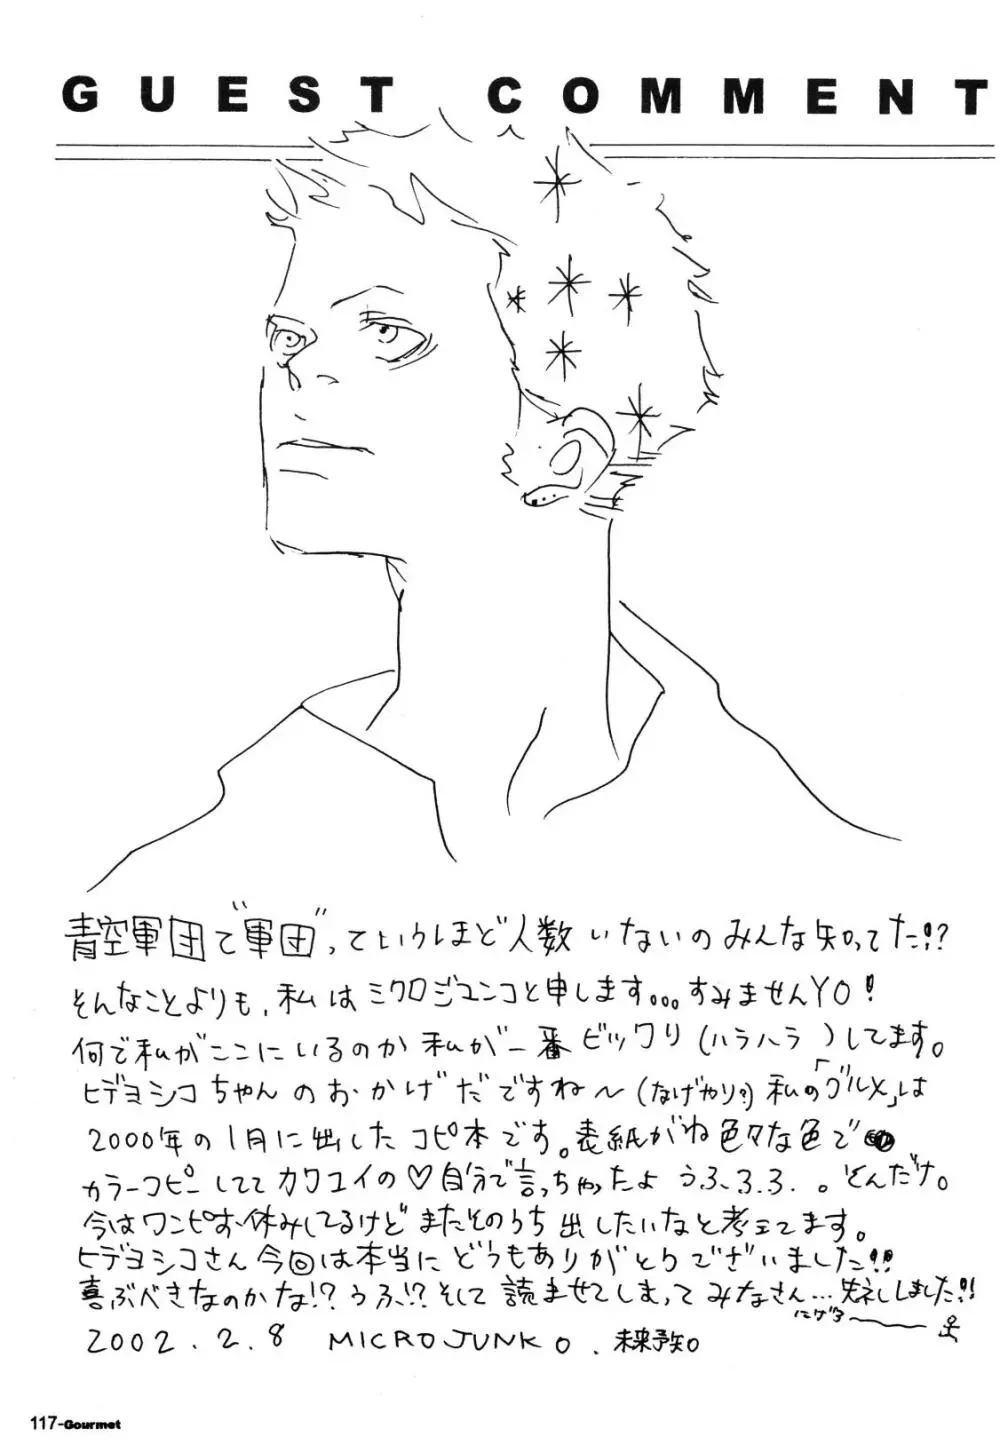 GUEST COMMENT
青空軍団で"軍団"っていうほど人数いないのみんな知ってた!?
そんなことよりも、私はミクロジュンコと申します。。。すみませんYO!
何で私がここにいるのか私が一番ビックリ(ハラハラ)してます。
ヒデヨシコちゃんのおかげだですね〜(なげやり?)私の「グルメ」は
2000年の1月に出したコピ本です。表紙がね色々な色で
カラーコピーしててカワユイの♡自分で言っちゃったようふ、3、3、。どんだけ。
今はワンピお休みしてるけどまたそのうち出したいなと考えてます。
ヒデヨシコさん今回は本当にどうもありがとうございました!!
喜ぶべきなのかな!?うふ!?そして読ませてしまってみなさん...失礼しました!!
にげる
2002.2.8 MICROJUNKO.
117-Gourmet